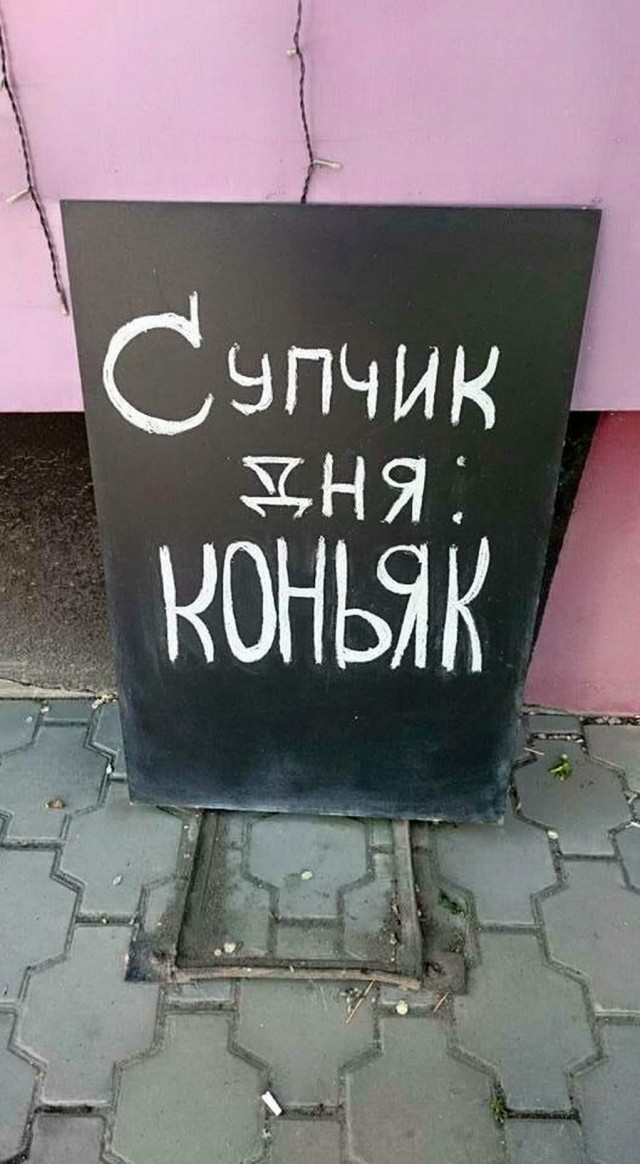 Супчик
дня:
коньяк